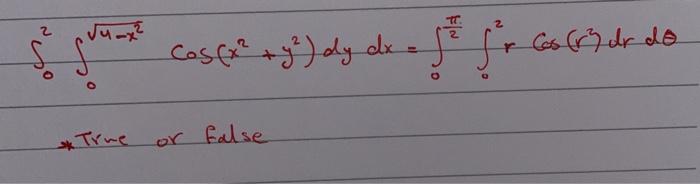 ∫₀² ∫₀^√(4-x²) Cos(x² + y²) dy dx = ∫₀^(π/2) ∫₀² r Cos(r²) dr dθ
* True or false